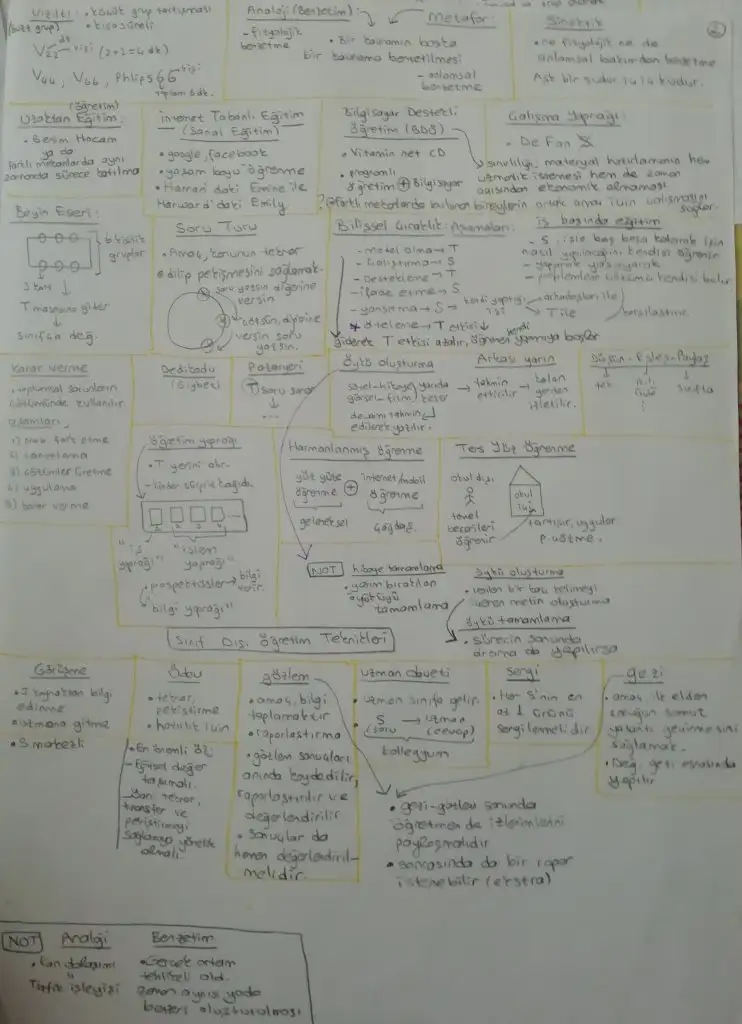 Vızıltı: • küçük grup tartışması
(buzz grup) • kısa süreli
V22 kişi (2+2=4 dk)
V44, V66, Philips 66
toplam 6 dk.
Analoji (Benzetim):
- fizyolojik
benzetme
Metafor:
• Bir kavramın başka
bir kavrama benzetilmesi
- anlamsal
benzetme
Sinektik
• ne fizyolojik ne de
anlamsal bakımdan benzetme
Aşk bir sudur iç iç kudur.
2
Uzaktan Eğitim:
(öğretim)
• Benim Hocam
ya da
farklı mekanlarda aynı
zamanda sürece katılma
İnternet Tabanlı Eğitim
(Sanal Eğitim)
• google, facebook
• yaşam boyu öğrenme
• Harran'daki Emine ile
Harward'daki Emily
Bilgisayar Destekli
Öğretim (BDÖ)
• Vitamin net CD
• programlı
öğretim + Bilgisayar
Çalışma Yaprağı:
• De Fan X
sınırlılığı, materyal hazırlamanın hem
uzmanlık istemesi hem de zaman
açısından ekonomik olmaması
? (farklı mekanlarda bulunan bireylerin ortak amaç için çalışmasını
sağlar.
Beyin Eseri:
6 kişilik
gruplar
T masasına gider
sınıfça değ.
Soru Turu
• Amaç, konunun tekrar
edilip pekişmesini sağlamak.
soru yazsın diğerine
versin
çözsün, diğerine
versin soru
yazsın.
Bilişsel Çıraklık: Aşamaları:
- Model olma → T
- Çalıştırma → S
- Destekleme → T
- ifade etme → S
- yansıtma → S
kendi yaptığı
işi
arkadaşları ile
T ile
karşılaştırma
* öteleme → T etkisi ↓
giderek T etkisi azalır, öğrenen yapmaya başlar
iş başında eğitim
- S, işle baş başa kalarak işin
nasıl yapılacağını kendisi öğrenir
- yaparak yaşayarak
- problemlerin çözümü kendisi bulur
Karar verme
• toplumsal sorunların
çözümünde kullanılır
1) prob. fark etme
2) tanımlama
3) çözümler üretme
4) uygulama
5) karar verme
Dedikodu
Pazaryeri
T soru sorar
...
Öykü oluşturma
devamı tahmin
edilerek yazılır.
Arkası yarın
yarıda
keser → tahmin
ettirilir → kalan
yerden
izletilir.
Düşün-Eşleş-Paylaş
tek
sınıfta
Öğretim yaprağı
• T yerini alır.
"iş
yaprağı"
"işlem
yaprağı"
• prospektüsler → bilgi
verir.
"bilgi yaprağı"
Harmanlanmış Öğrenme
yüz yüze
öğrenme + internet/mobil
öğrenme
geleneksel
çağdaş
Ters Yüz Öğrenme
okul dışı
temel
becerileri
öğrenir
okul
içi
tartışır, uygular
p.çözme.
NOT
hikaye tamamlama
• yarım bırakılan
öyküyü
tamamlama
öykü oluşturma
• verilen bir kaç kelimeyi
içeren metin oluşturma
öykü tamamlama
• Sürecin sonunda
drama da yapılırsa
Sınıf Dışı Öğretim Teknikleri
Görüşme
• 1. kaynaktan bilgi
edinme
• uzmana gitme
• S merkezli
Ödev
• tekrar,
pekiştirme
• hazırlık için
• En önemli öz:
- Eğitsel değer
taşımalı.
- Yani tekrar,
transfer ve
pekiştirmeyi
sağlamaya yönelik
olmalı.
gözlem
• amaç, bilgi
toplamaktır
• raporlaştırma
• gözlem sonuçları
anında kaydedilir,
raporlaştırılır ve
değerlendirilir
• sonuçlar da
hemen değerlendiril-
melidir.
uzman daveti
• uzman sınıfa gelir.
S → uzman
(soru) (cevap)
kolleqyum
Sergi
• Her S'nin en
az 1 ürünü
sergilenmelidir.
gezi
• amaç ilk elden
çocuğun somut
yaşantı geçirmesini
sağlamak.
• Değ. gezi esnasında
yapılır
• gezi-gözlem sonunda
öğretmen de izlenimlerini
paylaşmalıdır
• sonrasında da bir rapor
istenebilir (ekstra)
NOT
Analoji
• Kan dolaşımı
=
Trafik işleyişi
Benzetim
• Gerçek ortam
tehlikeli old.
zaman aynısı yada
benzeri oluşturulması